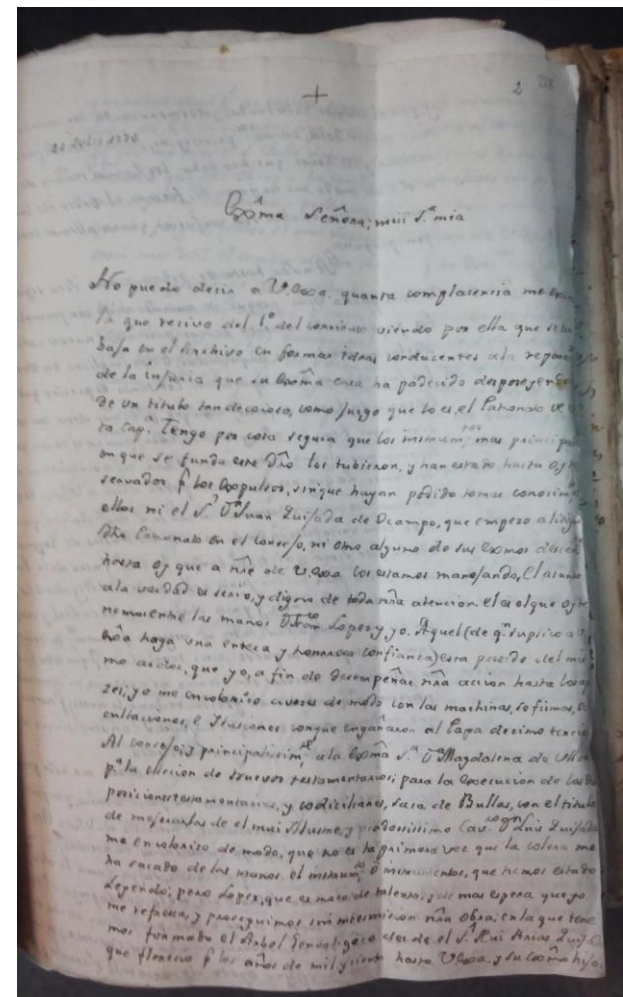 +
2 225
Exma Señora; mui S.ª mia
No puedo decir a V.Exa. quanta complasencia me
la que recivo del 1.º del corriente viendo por ella que se tra
baja en el Archivo en formar ideas conducentes a la repara
de la injuria que su Exma casa ha padecido desposeyendo
de un titulo tan decoroso, como juzgo que lo es, el Patronato de
ta Cap.ª Tengo por cosa segura que los instrum.tos mas principa
en que se funda este Dño los tubieron, y han estado hasta oy
servados p.r los Expulsos, sin que hayan podido tomar conosim
ellos ni el S.r D.n Juan Quijada de Ocampo, que empezo a litig
dho Patronato en el consejo, ni otro alguno de sus Exmos descen
hasta oy que a nre de V.Exa los estamos manejando, El asunto
a la verdad es serio, y digno de toda nra atencion el es el que oy te
nemos entre las manos D.n Fran.co Lopez y yo. Aquel (de q.n suplico a
haga una entera y honrrosa confianza) esta poseido del mis
mo ardor, que yo, a fin de desempeñar nra accion hasta los
yo me encolerizo a veces de modo con las machinas, sofismas,
cultaciones, e Ilusiones con que engañaron al Papa decimo tercio
Al consejo, y principalissim.te a la Exma S.ra D.ª Magdalena de Ulloa
p.ª la eleccion de nuevos testamentarios; para la execucion de las dis
posiciones testamentarias, y codicilianes, saca de Bullas, con el titulo
de mejorarlas de el mui Illustre, y piadosissimo Cav.ro D.n Luis Quijada
me encolerizo de modo, que no es la primera vez que la colera me
ha sacado de las manos el instrum.to ó instrumentos, que hemos estado
Leyendo; pero Lopez, que es mozo de talento, y de mas espera que yo
me refresca, y proseguimos sin intermision nra obra; en la que tene
mos formado el Arbol Genealogico desde el S.r Rui Arias Quijada
que florecio p.r los años de mil y ciento hasta V.Exa. y su Exmo hijo.